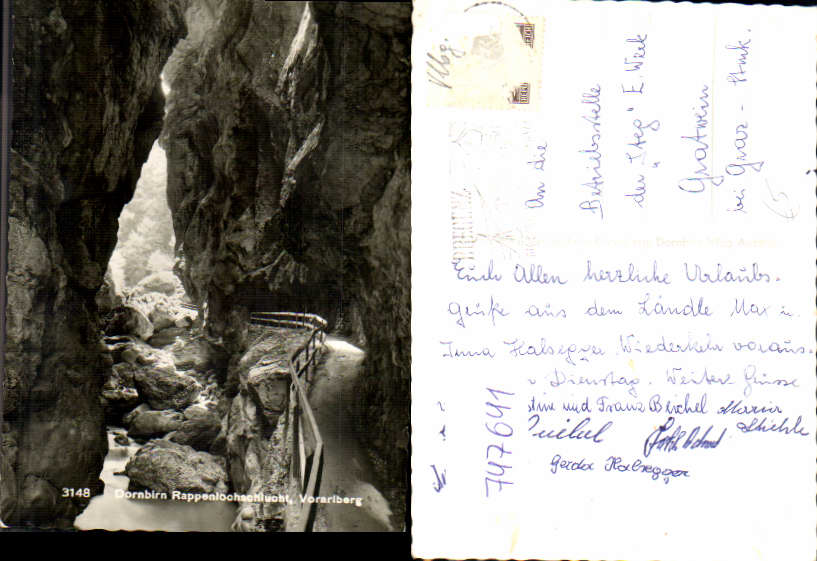 3148 Dornbirn Rappenlochschlucht, Vorarlberg
Vlbg.
An die
Betriebsstelle
der "Steg" E. Werk
Gratwein
bei Graz - Stmk.
65
Euch Allen herzliche Urlaubs-
grüße aus dem Ländle Max u.
Inna Halsegger. Wiederkehr voraus-
Dienstag. Weitere Grüsse
und Franz Beichel Maria
Gerda Halsegger
747641